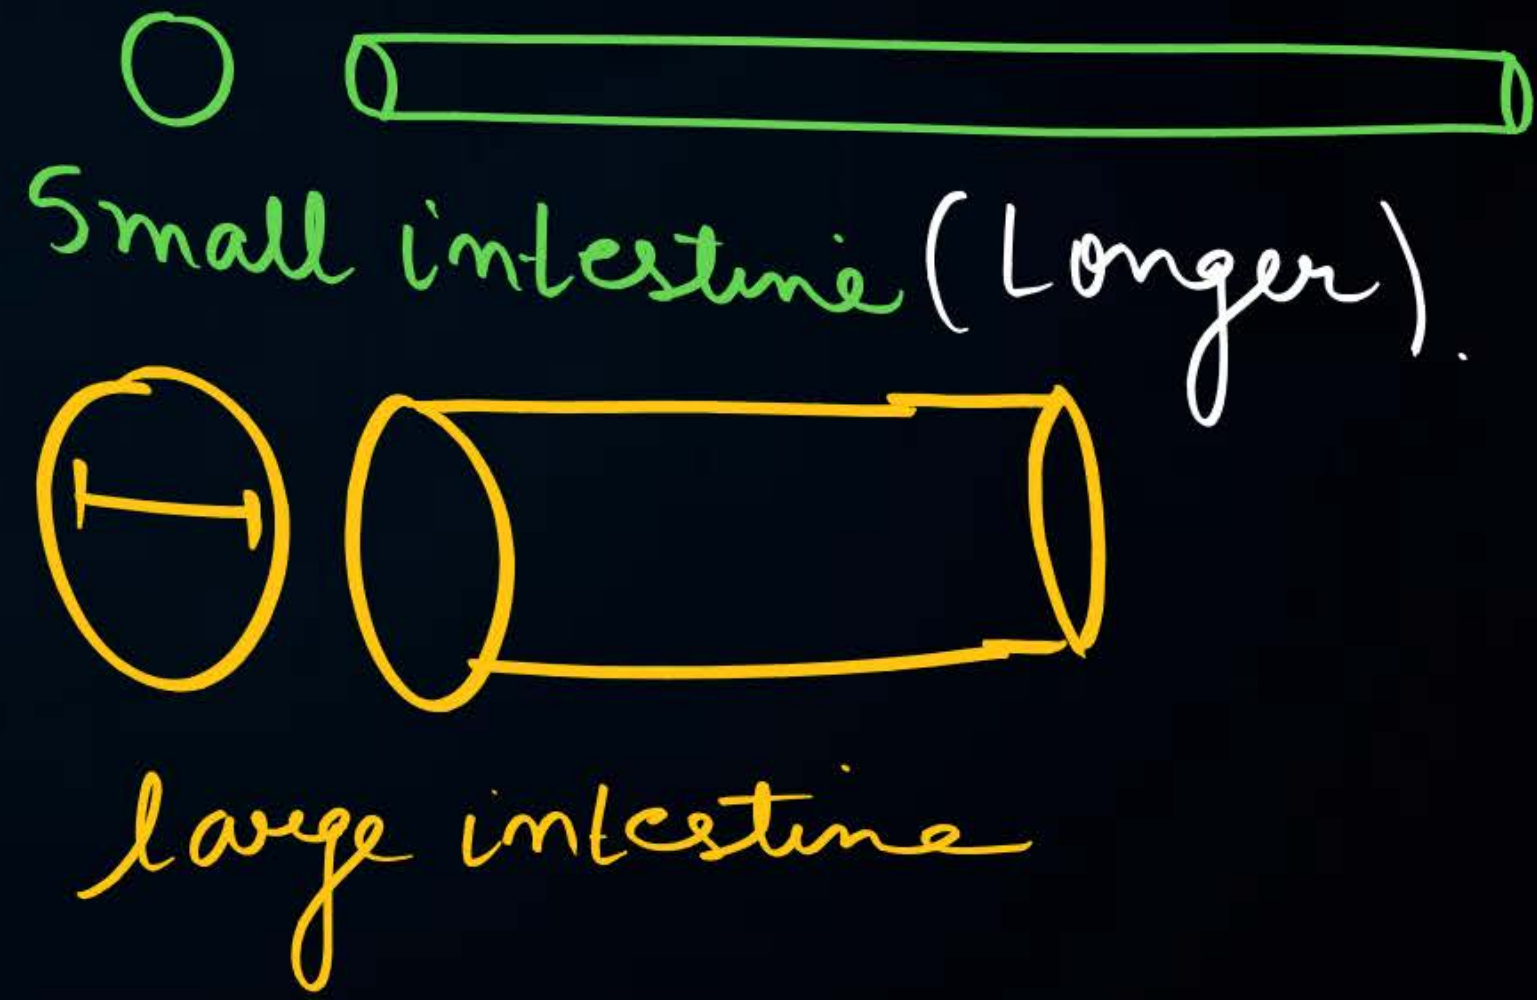 Small intestine (Longer).
large intestine